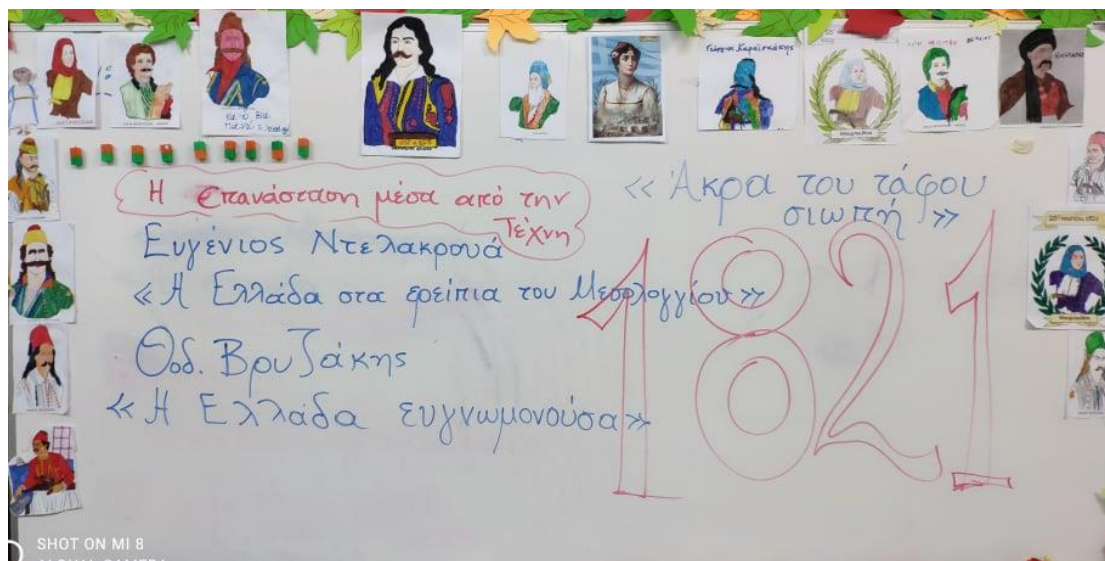 Γεώργιος Καραϊσκάκης
Η Επανάσταση μέσα από την
Τέχνη
« Άκρα του τάφου
σιωπή »
Ευγένιος Ντελακρουά
« Η Ελλάδα στα ερείπια του Μεσολογγίου »
Θοδ. Βρυζάκης
« Η Ελλάδα ευγνωμονούσα »
1821
SHOT ON MI 8